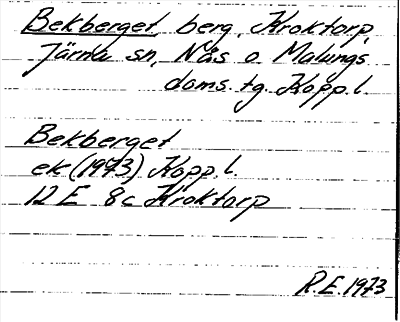 Bekberget, berg, Kroktorp,
Järna sn, Nås o. Malungs
doms. tg. Kopp. l.
Bekberget
ek (1973) Kopp. l.
12 E 8c Kroktorp
R.E. 1973